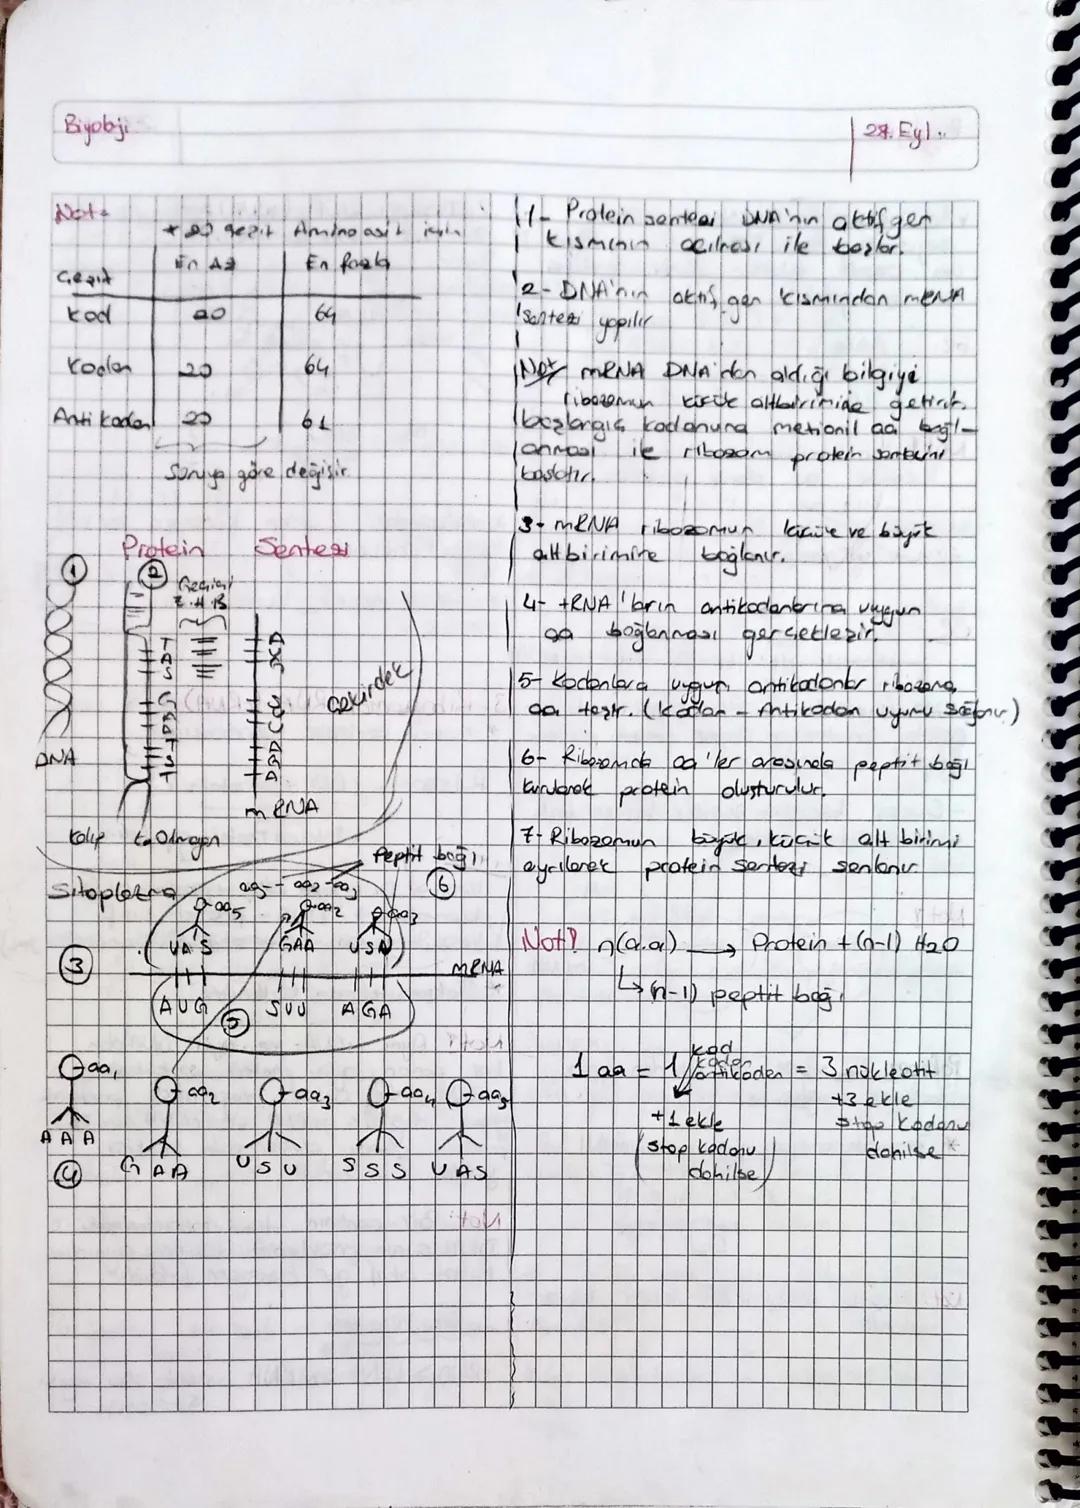 Biyoloji
27. Eyl..
Not:
* 20 çeşit Amino asit için
Çeşit
En Az
En fazla
Kod 20 64
Kodon 20 64
Anti kodon 20 61
Soruya göre değişir.
Protein Sentezi
1
2
Geçici
Z.H.B
T
A
S
T
S
T
çekirdek
DNA
mRNA
Kalıp
Olmayan
Peptit bağı
6
Sitoplazma
aa5
aa2
aa3
UAS GAA USA
3
mRNA
AUG SUU AGA
5
aa1
aa2 aa3 aa4 aa5
AAA
GAA USU SSS UAS
4
1- Protein sentezi DNA'nın aktif gen
kısmının açılması ile başlar.
2- DNA'nın aktif gen kısmından mRNA
sentezi yapılır
Not/ mRNA DNA'dan aldığı bilgiyi
ribozomun küçük altbirimine getirir.
başlangıç kodonuna metionil aa bağl-
anması ile ribozom protein sentezini
başlatır.
3- mRNA ribozomun küçük ve büyük
alt birimine bağlanır.
4- tRNA'ların antikodonlarına uygun
aa bağlanması gerçekleşir.
5- Kodonlara uygun antikodonlar ribozoma
aa taşır. (Kodon - Antikodon uyumu sağlanır)
6- Ribozomda aa'ler arasında peptit bağı
kurularak protein oluşturulur.
7- Ribozomun büyük, küçük alt birimi
ayrılarak protein sentezi sonlanır
Not? n(a.a) → Protein + (n-1) H2O
(n-1) peptit bağı
kod
kodon
1 aa = 1 antikodon = 3 nükleotit
+1 ekle
(stop kodonu
dahilse)
+3 ekle
stop kodonu
dahilse *